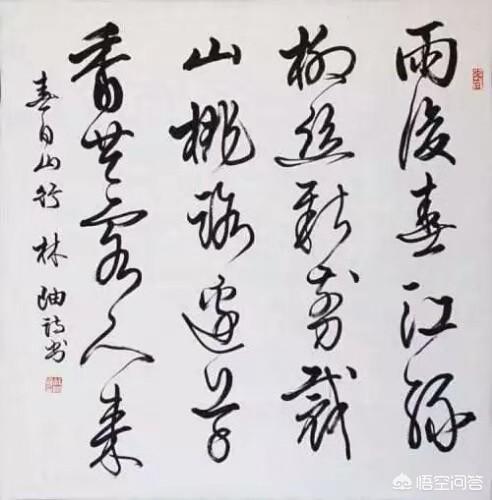 雨後春江綠
柳絲新剪裁
山桃路邊草
香共客人來
春日山行 林岫詩書
悟空问答